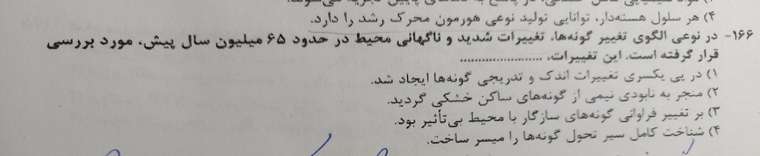 ۴) هر سلول هسته‌دار، توانایی تولید نوعی هورمون محرک رشد را دارد.
۱۶۶- در نوعی الگوی تغییر گونه‌ها، تغییرات شدید و ناگهانی محیط در حدود ۶۵ میلیون سال پیش، مورد بررسی
قرار گرفته است. این تغییرات، .......................
۱) در پی یکسری تغییرات اندک و تدریجی گونه‌ها ایجاد شد.
۲) منجر به نابودی نیمی از گونه‌های ساکن خشکی گردید.
۳) بر تغییر فراوانی گونه‌های سازگار با محیط بی‌تأثیر بود.
۴) شناخت کامل سیر تحول گونه‌ها را میسر ساخت.